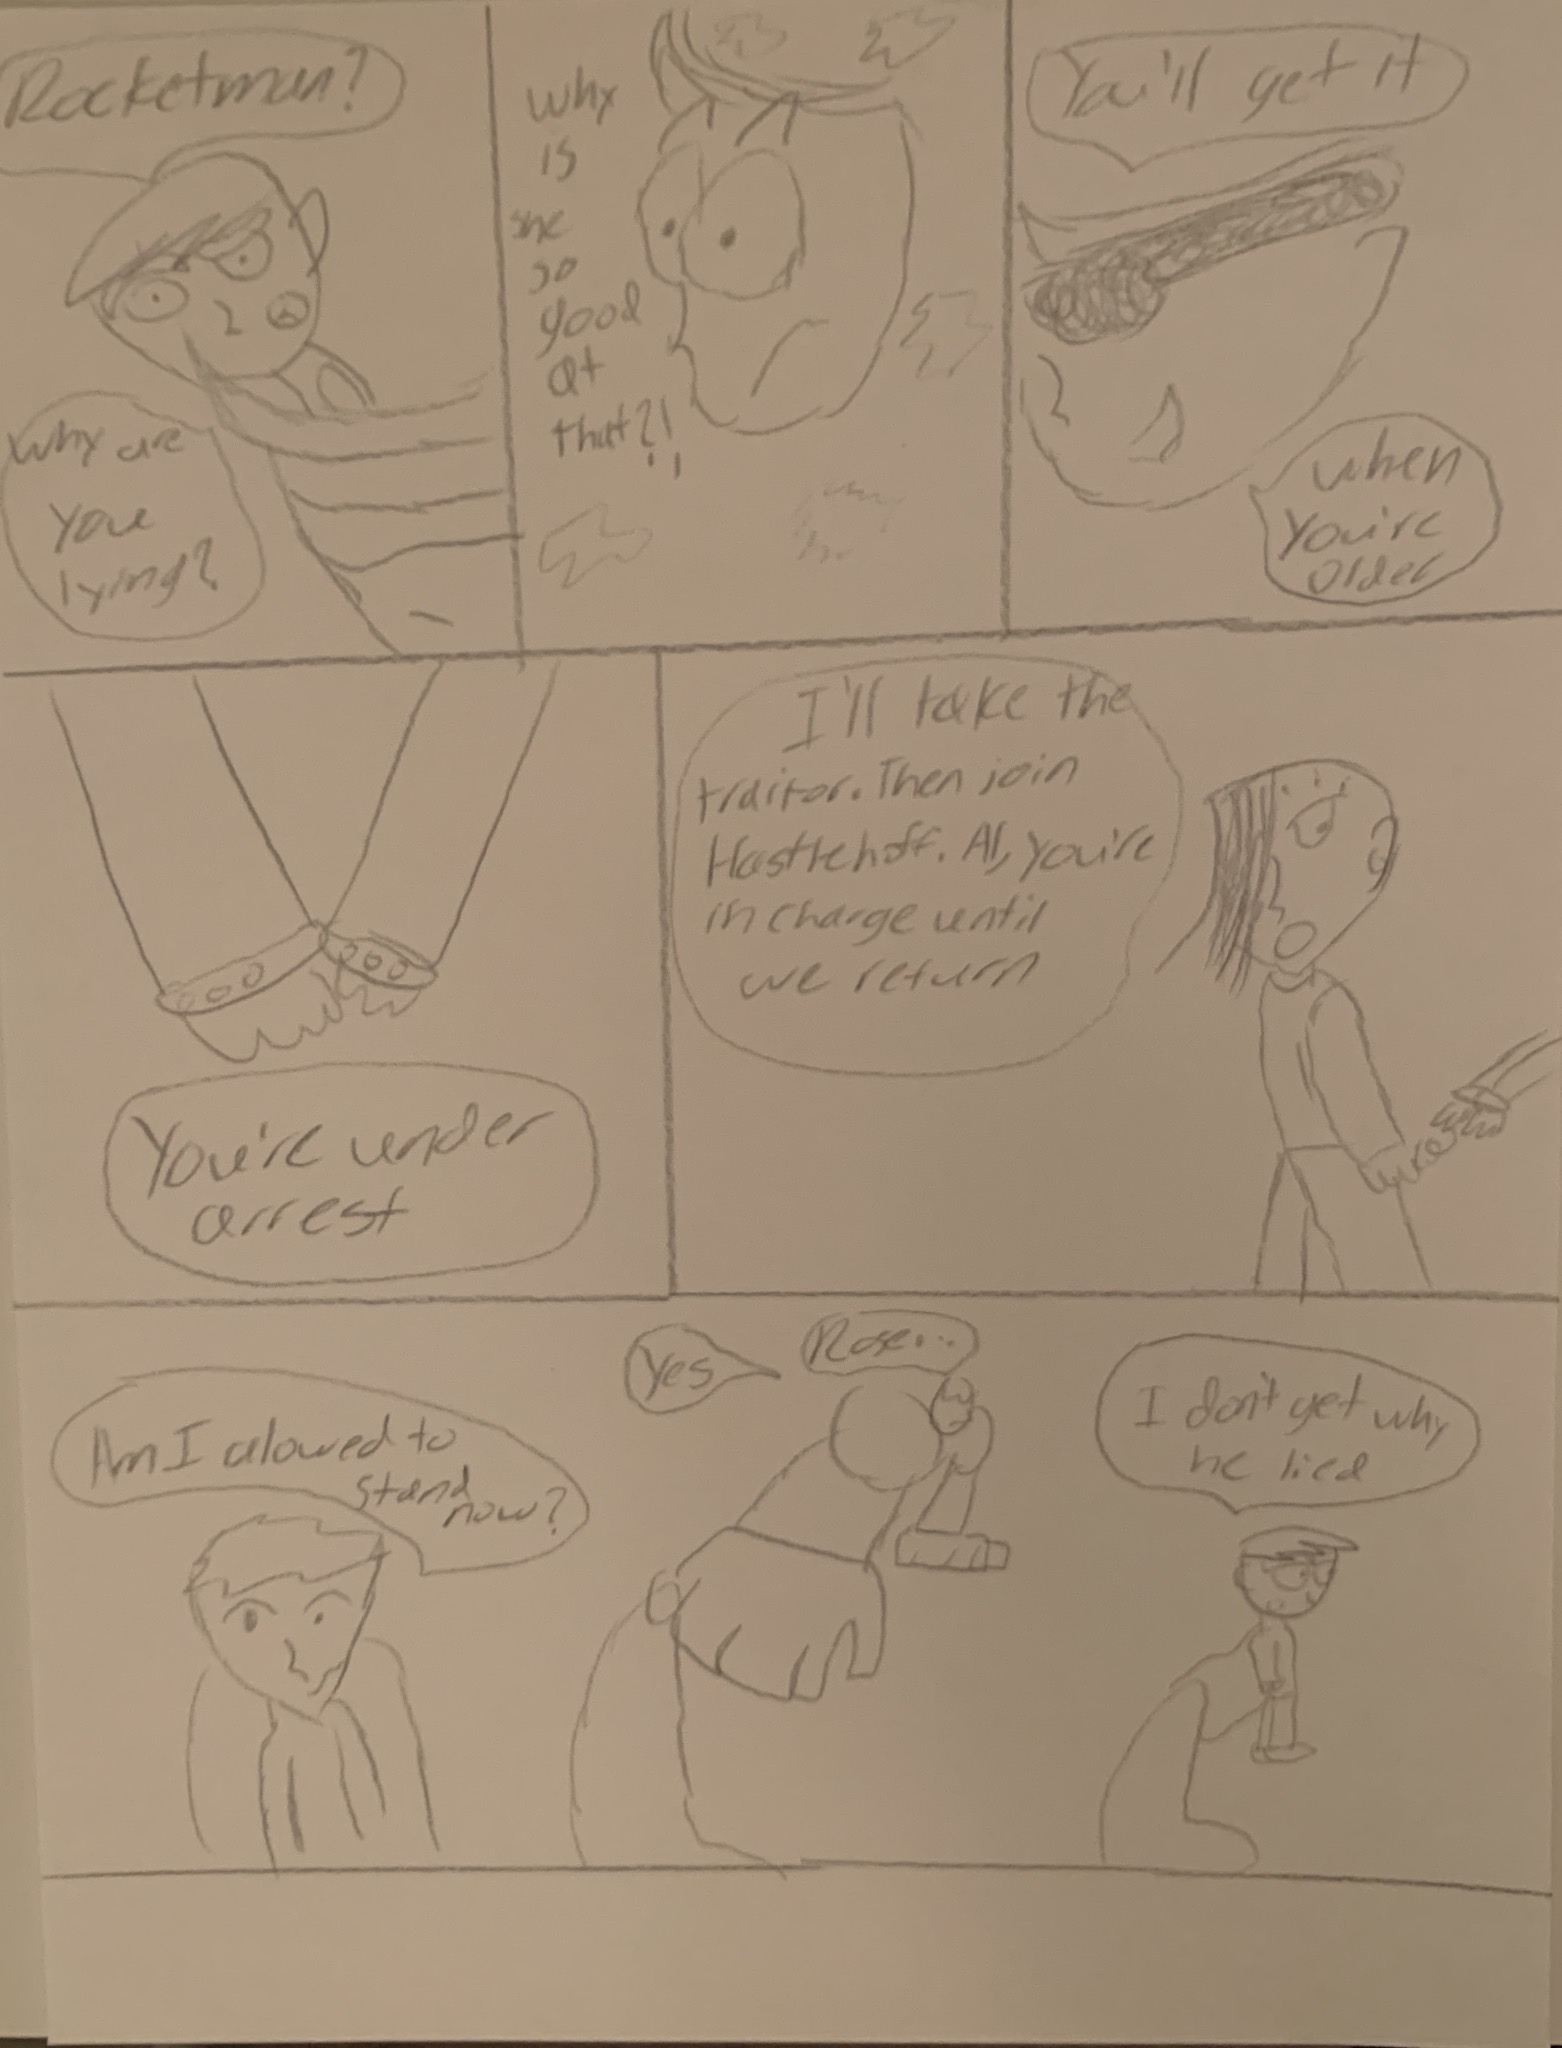 Rocketman?
Why are
you
lying?
Why
is
she
so
good
at
that?!
You'll get it
when
you're
older
You're under
arrest
I'll take the
traitor. Then join
Hasttehoff. Al, you're
in charge until
we return
Am I alowed to
stand
now?
Yes
Rose...
I don't get why
he lied